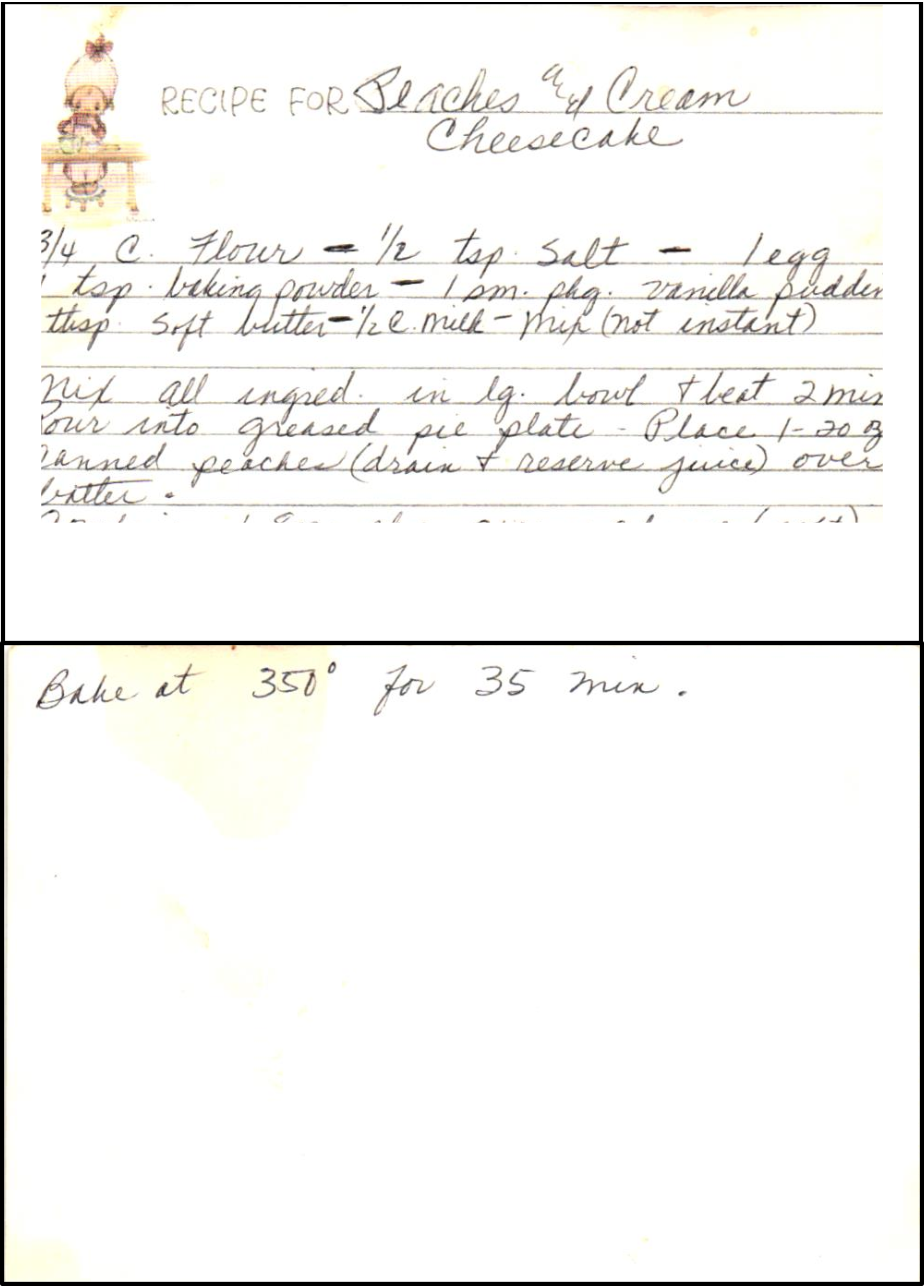 RECIPE FOR Peaches and Cream
Cheesecake
3/4 C. Flour - 1/2 tsp. Salt - 1 egg
tsp. baking powder - 1 sm. pkg. vanilla puddin
tbsp. Soft butter - 1/2 C. milk - Mix (not instant)
Mix all ingred. in lg. bowl & beat 2 min
our into greased pie plate - Place 1-20 oz
canned peaches (drain & reserve juice) over
batter.
Bake at 350° for 35 min.